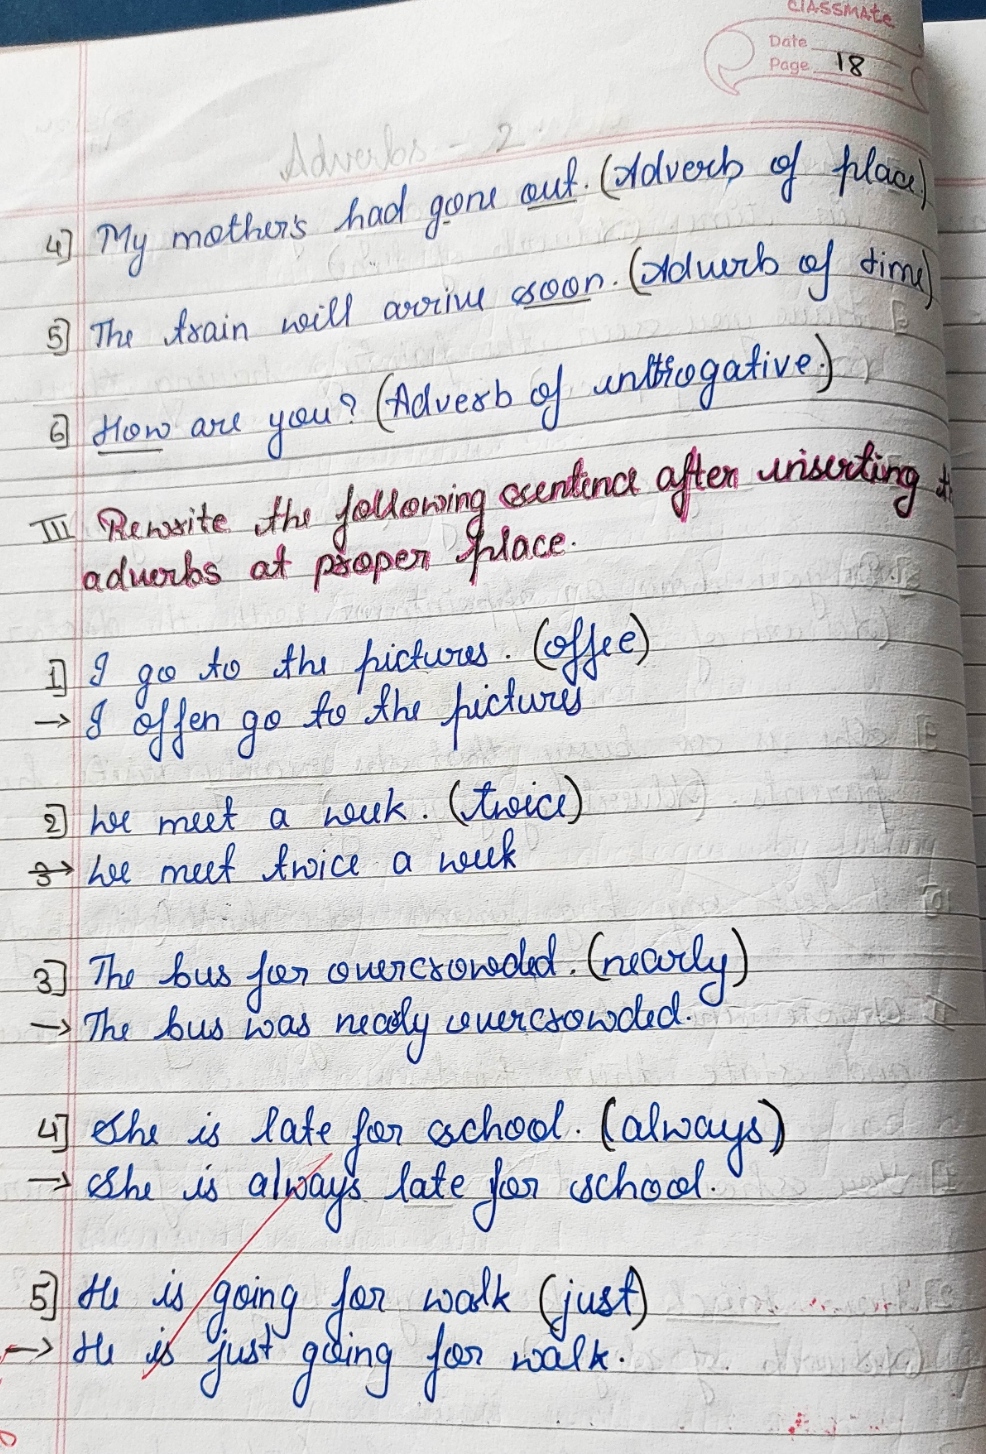 CLASSMATE
Date
Page 18
Adverbs - 2
4] My mother's had gone out. (Adverb of place)
5] The train will arrive soon. (Adverb of time)
6] How are you? (Adverb of intrrogative.)
III Rewrite the following sentence after inserting
adverbs at proper place.
1] I go to the pictures. (offee)
→ I offen go to the pictures
2] We meet a week. (twice)
→ We meet twice a week
3] The bus for overcrowded. (nearly)
→ The bus was nealy overcrowded.
4] She is late for school. (always)
→ She is always late for school.
5] He is going for walk (just)
→ He is just going for walk.